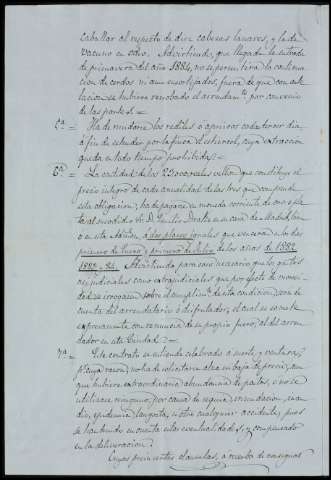 caballar al respecto de diez cabezas lanares, y la de
vacuno en seis. Advirtiendo, que llegada la entrada
de primavera del año 1884, no se permitirá la continua-
cion de cerdos ni aun ensortijados, fuera de que con esta
lacion se hubiera renovado el arrendamto por convenio
de las partes.
5ª = Ha de mudarse los rediles ó apriscos cada tercer dia,
á fin de estender por la finca el estiercol, cuya extraccion
queda en todo tiempo prohibida.
6ª = La cantidad de los reales vellon que constituye el
precio integro de cada anualidad de las tres que comprende
esta obligacion, ha de pagarse en moneda corriente de oro ó pla-
ta al susodicho Sr. D. en su casa de Madrid,
ó en esta á dos plazos iguales que vencerán en los dias
primero de Enero y primero de Julio de los años de 1882
1883 - 84. Advirtiendo para caso necesario que los gastos
así judiciales como extrajudiciales que por efecto de morosi-
dad se irroguen sobre el cumplimto de esta condicion, son de
cuenta del arrendatario ó disputador, el cual se somete
expresamente con renuncia de su propio fuero, al del arren-
dador en esta Ciudad.
7ª = Este contrato se entiende celebrado a suerte y ventura,
pr cuya razon, no ha de solicitarse alza ni baja de precio, aun-
que hubiere extraordinaria abundancia de pastos, ó no se
utilizare ninguno, por causa de sequia, inundacion, incen-
dio, epidemia, langosta, ú otro cualquier accidente, pues
se han tenido en cuenta estas eventualidades, y compensado
en la deliberacion.
Cuyas preinsertas clausulas, á nombre de